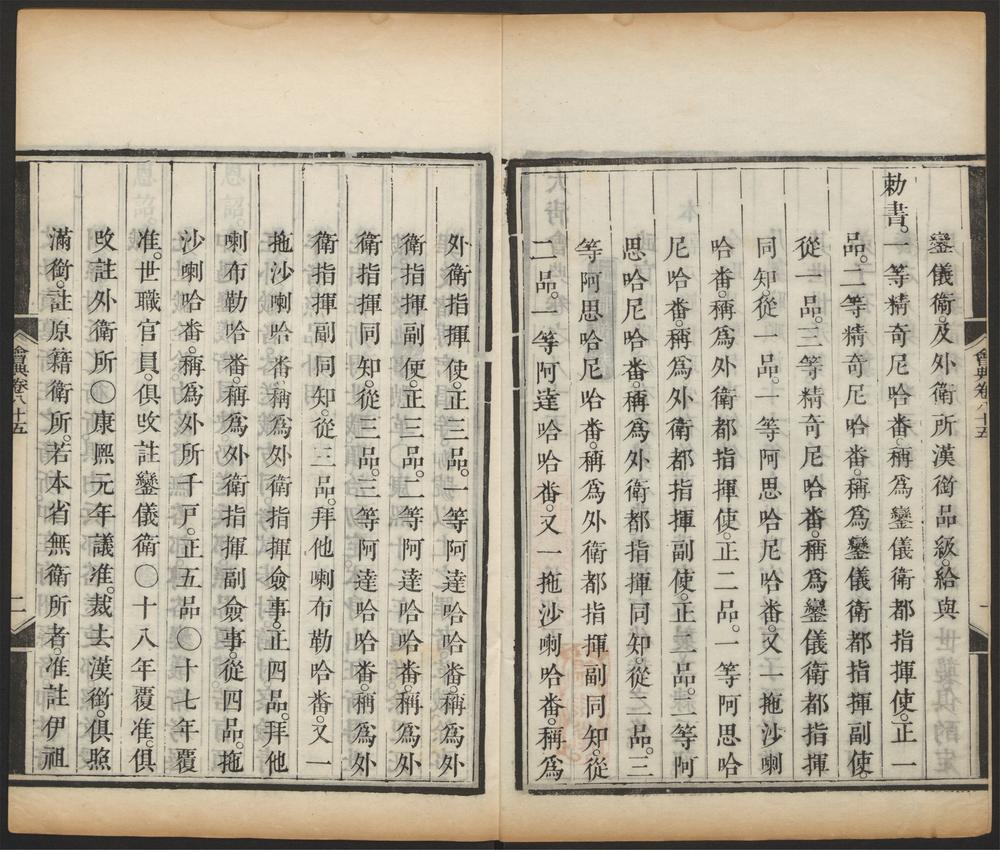 鑾儀衛及外衛所漢銜品級給與
勅書一等精奇尼哈番稱爲鑾儀衛都指揮使正一
品二等精奇尼哈番稱爲鑾儀衛都指揮副使
從一品三等精奇尼哈番稱爲鑾儀衛都指揮
同知從一品一等阿思哈尼哈番又一拖沙喇
哈番稱爲外衛都指揮使正二品一等阿思哈
尼哈番稱爲外衛都指揮副使正二品二等阿
思哈尼哈番稱爲外衛都指揮同知從二品三
等阿思哈尼哈番稱爲外衛都指揮副同知從
二品一等阿達哈哈番又一拖沙喇哈番稱爲
會典卷八十五
一
外衛指揮使正三品一等阿達哈哈番稱爲外
衛指揮副使正三品二等阿達哈哈番稱爲外
衛指揮同知從三品三等阿達哈哈番稱爲外
衛指揮副同知從三品拜他喇布勒哈番又一
拖沙喇哈番稱爲外衛指揮僉事正四品拜他
喇布勒哈番稱爲外衛指揮副僉事從四品拖
沙喇哈番稱爲外所千戸正五品〇十七年覆
准世職官員俱攺註鑾儀衛〇十八年覆准俱
攺註外衛所〇康熙元年議准裁去漢銜俱照
滿銜註原籍衛所若本省無衛所者准註伊祖
會典卷八十五
二